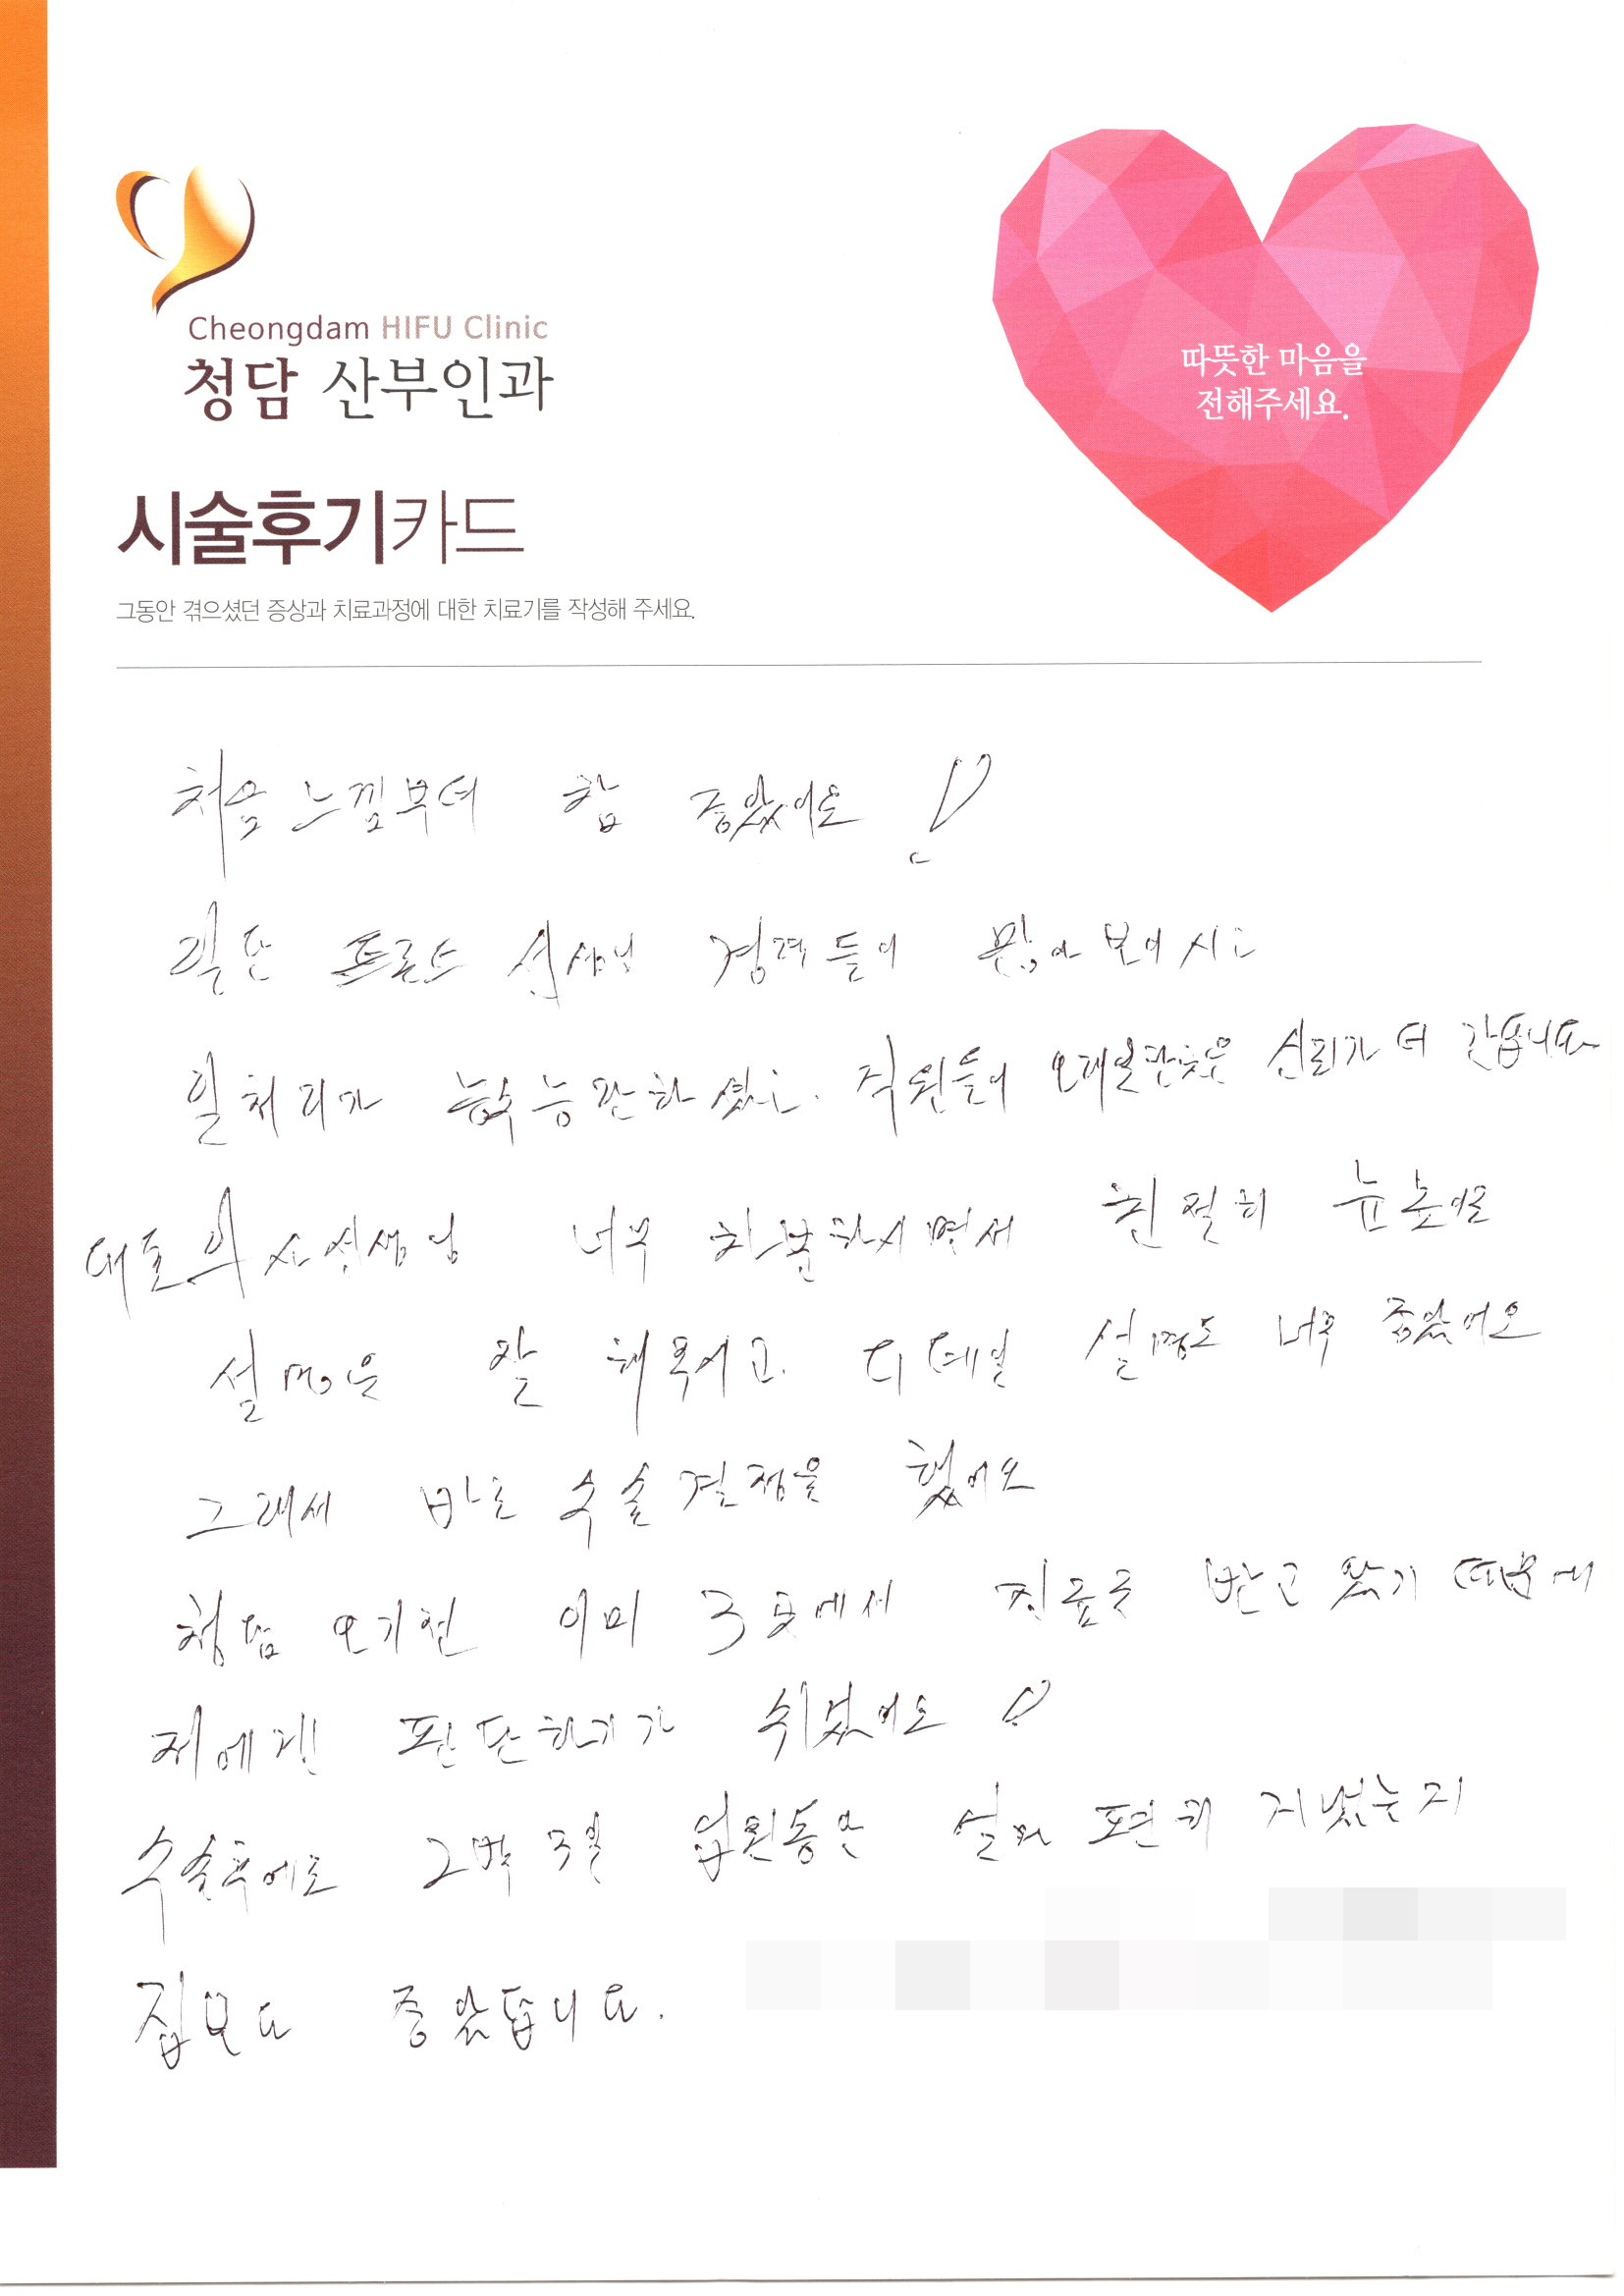 Cheongdam HIFU Clinic
청담 산부인과
따뜻한 마음을
전해주세요.
시술후기카드
그동안 겪으셨던 증상과 치료과정에 대한 치료기를 작성해 주세요.
처음 느낌부터 참 좋았어요!
일단 프론트 선생님 경력들이 많아 보이시고
일처리가 능수능란하셨고. 직원들이 오래일한곳은 신뢰가 더 갑니다
대표 의사선생님 너무 차분하시면서 친절히 눈높이로
설명을 잘 해주시고. 디테일 설명도 너무 좋았어요
그래서 바로 수술결정을 했어요
청담 오기전 이미 3곳에서 진료를 받고 왔기 때문에
저에겐 판단하기가 쉬웠어요!
수술후에도 2박3일 입원동안 얼마 편히 지냈는지
집보다 좋았답니다.